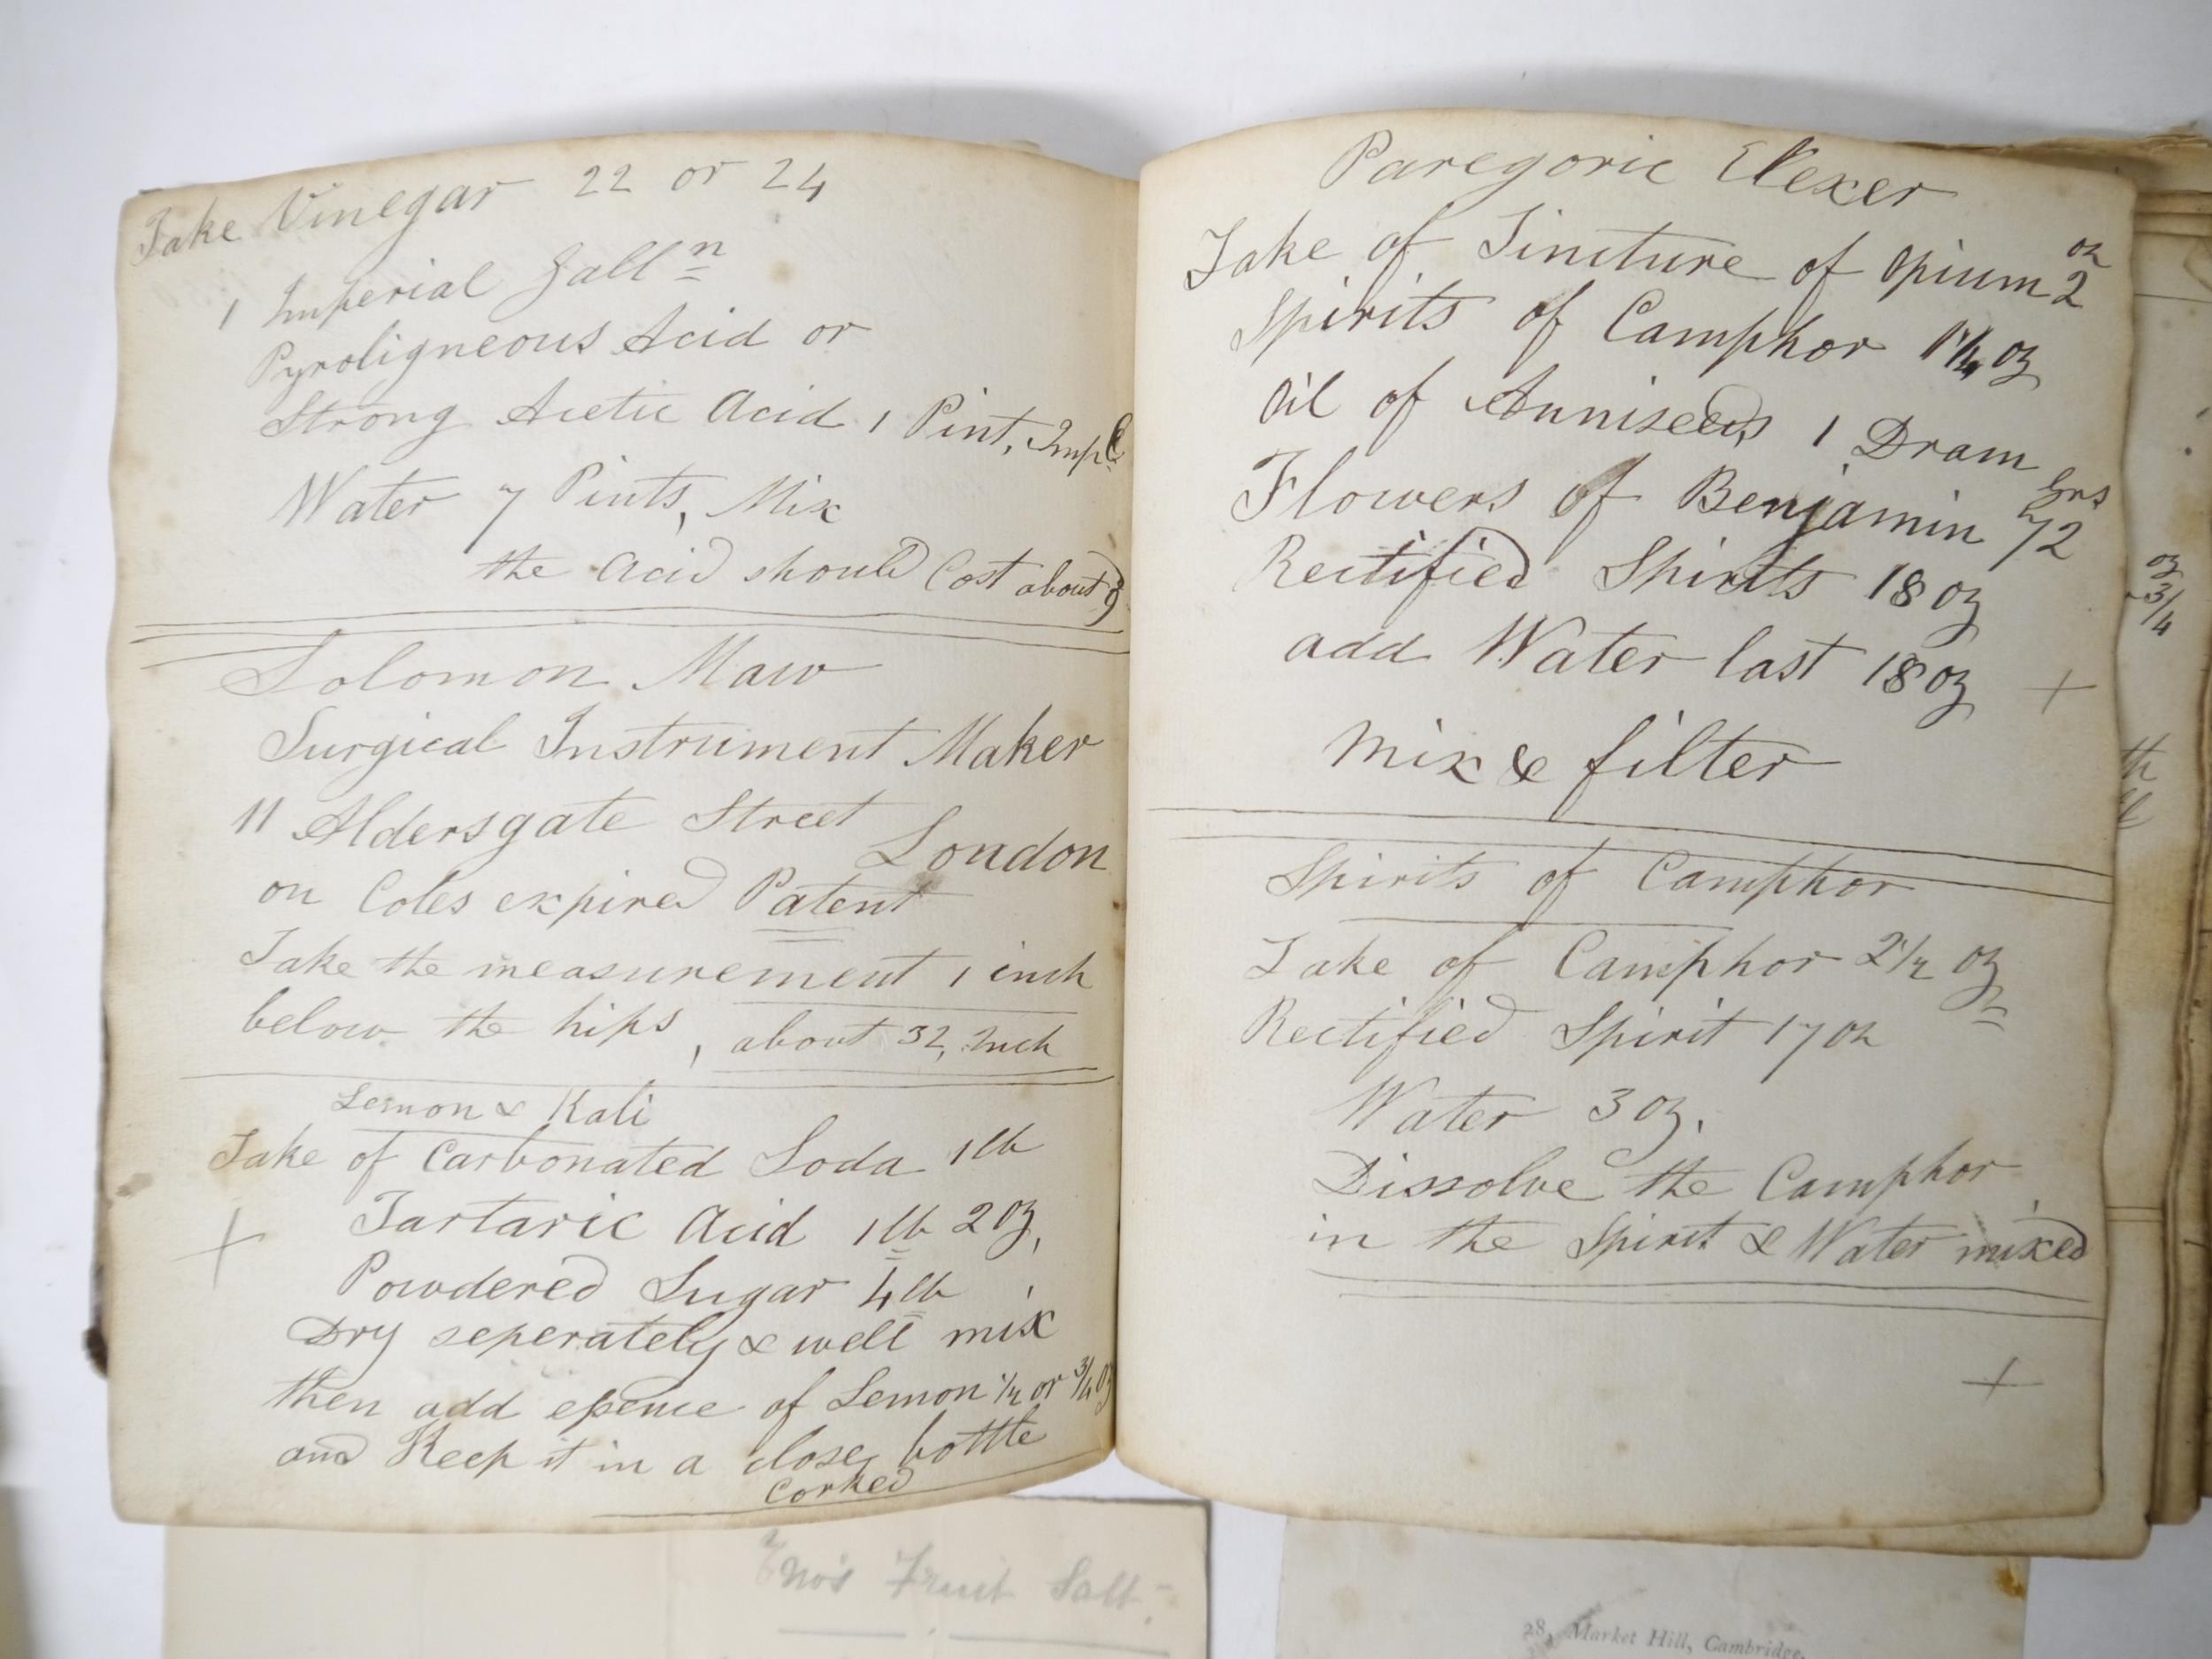 Take Vinegar 22 or 24
1 Imperial Galln
Pyroligneous Acid or
Strong Acetic Acid 1 Pint, Impl
Water 7 Pints, Mix
the Acid should Cost about
Solomon Maw
Surgical Instrument Maker
11 Aldersgate Street
London
on Coles expired Patent
Take the measurement 1 inch
below the hips, about 32, Inch
Lemon & Kali
Take of Carbonated Soda 1 lb
+ Tartaric Acid 1 lb 2 oz,
Powdered Sugar 4 lb
Dry seperately & well mix
then add essence of Lemon 1/2 or 3/4 oz
and Keep it in a close bottle
Corked
Paregoric Elexer
Take of Tincture of Opium 2 oz
Spirits of Camphor 1 1/4 oz
Oil of Anniseeds 1 Dram
Flowers of Benjamin 72 Grs
Rectified Spirits 18 oz
add Water last 18 oz +
Mix & filter
Spirits of Camphor
Take of Camphor 2 1/2 oz
Rectified Spirit 17 oz
Water 3 oz.
Dissolve the Camphor
in the Spirit & Water mixed
+
oz
3/4
th
Eno's Fruit Salt.
28, Market Hill, Cambridge.